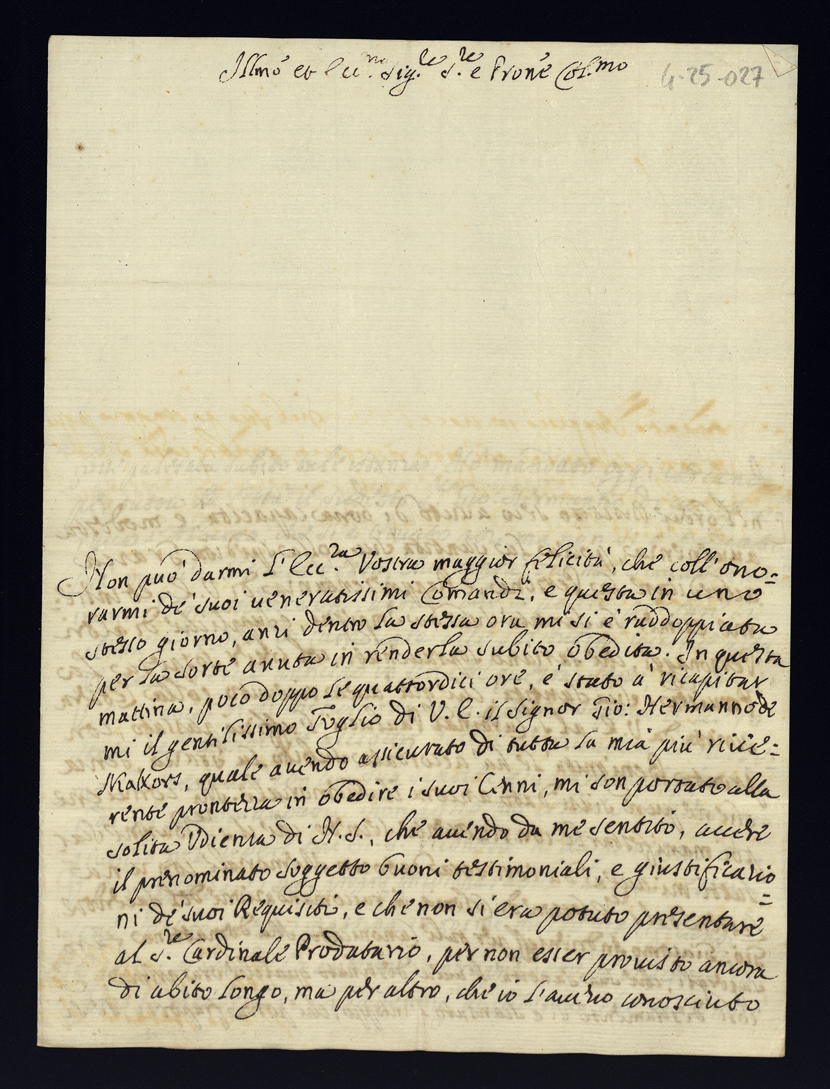 Illmo et Ecc.mo Sig.re S.re e Prone Col.mo
4-25-027
Non può darmi l'Ecc.za Vostra maggior felicità, che coll'ono=
rarmi de' suoi veneratissimi Comandi, e questa in uno
stesso giorno, anzi dentro la stessa ora mi si è raddoppiata
per la sorte avuta in renderla subito obedita. In questa
mattina, poco doppo le quattordici ore, è stato à ricapitar
mi il gentilissimo Foglio di V. E. il Signor Gio: Hermanno de
quale avendo assicurato di tutta la mia più rive=
rente prontezza in obedire i suoi Cenni, mi son portato alla
solita Udienza di N. S., che avendo da me sentito, avere
il prenominato Soggetto buoni testimoniali, e giustificazio
=
ni de' suoi Requisiti, e che non si era potuto presentare
al S.re Cardinale Prodatario, per non esser provisto ancora
di abito longo, ma per altro, che io l'avevo conosciuto